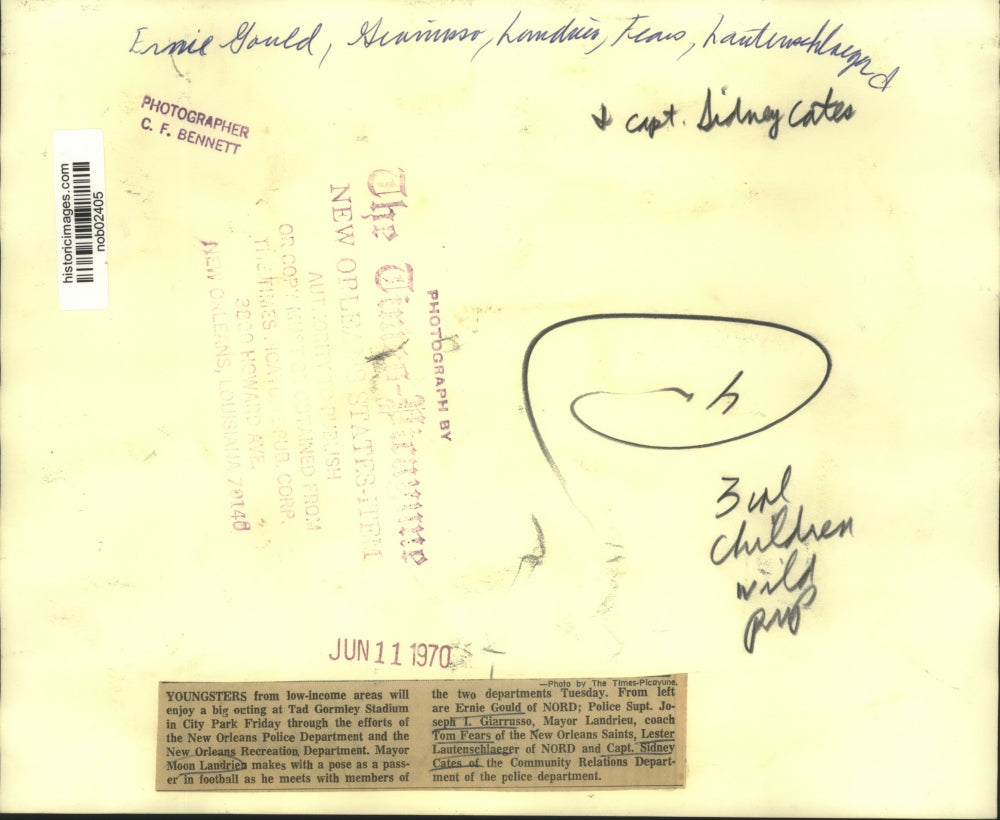 Ernie Gould, Giarrusso, Landrieu, Fears, Lautenschlaeger &
& capt. Sidney Cates
PHOTOGRAPHER
C. F. BENNETT
historicimages.com
nob02405
PHOTOGRAPH BY
The Times-Picayune
NEW ORLEANS STATES-ITEM
AUTHORITY TO PUBLISH
OR COPY MUST BE OBTAINED FROM
THE TIMES-PICAYUNE PUB. CORP.
3800 HOWARD AVE.
NEW ORLEANS, LOUISIANA 70140
h
3 col
children
wild
prop
JUN 11 1970
YOUNGSTERS from low-income areas will
enjoy a big outing at Tad Gormley Stadium
in City Park Friday through the efforts of
the New Orleans Police Department and the
New Orleans Recreation Department. Mayor
Moon Landrieu makes with a pose as a pass-
er in football as he meets with members of
—Photo by The Times-Picayune.
the two departments Tuesday. From left
are Ernie Gould of NORD; Police Supt. Jo-
seph I. Giarrusso, Mayor Landrieu, coach
Tom Fears of the New Orleans Saints, Lester
Lautenschlaeger of NORD and Capt. Sidney
Cates of the Community Relations Depart-
ment of the police department.